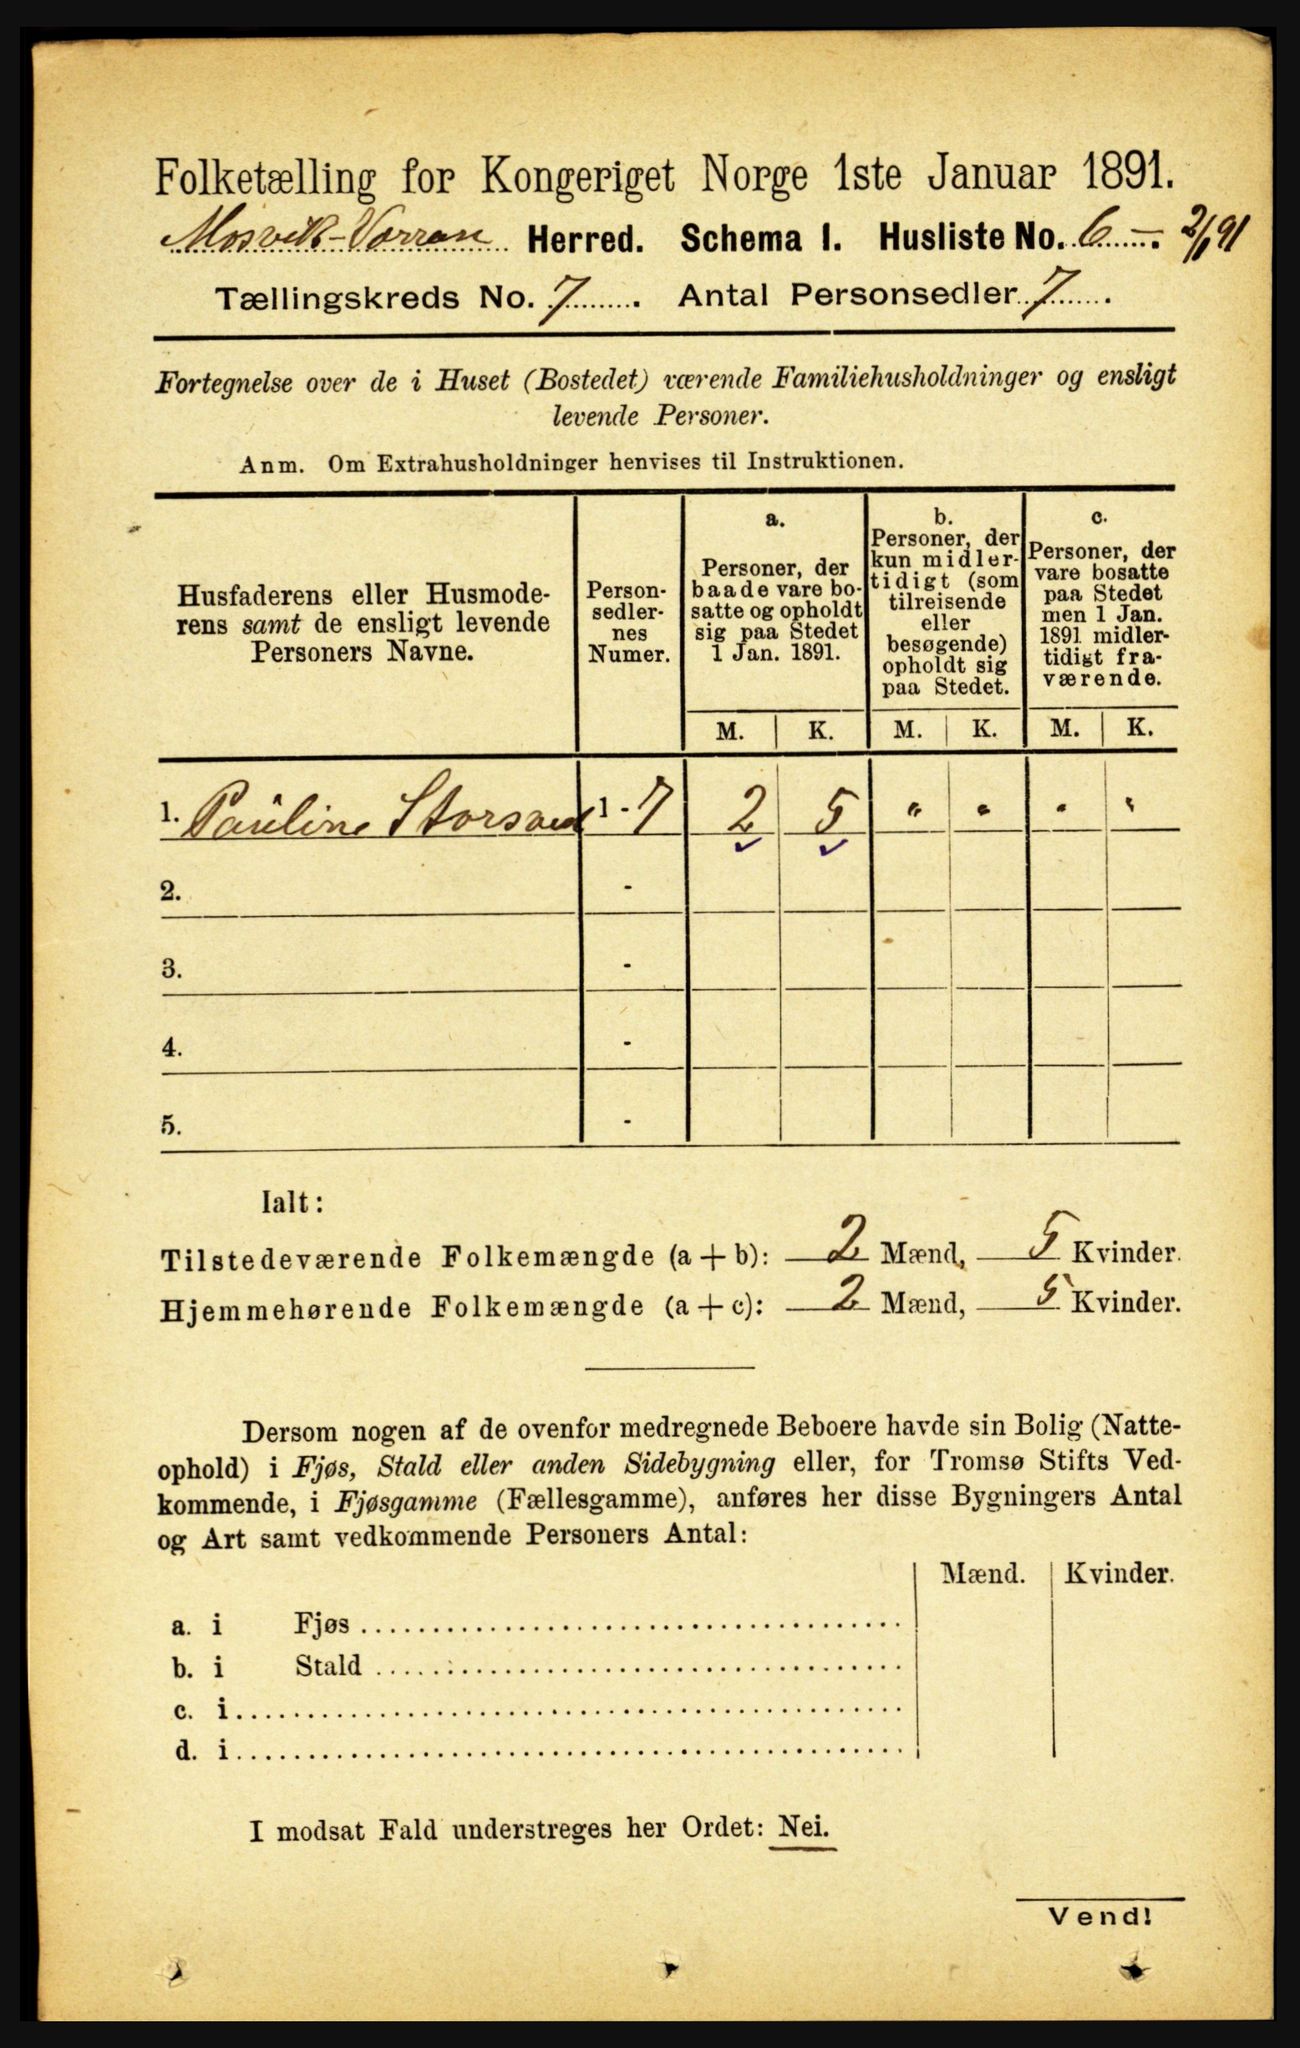 Folketælling for Kongeriget Norge 1ste Januar 1891.
Mosvik-Varran Herred. Schema I. Husliste No. 6 –. 2/1 91
Tællingskreds No. 7. Antal Personsedler 7.
Fortegnelse over de i Huset (Bostedet) værende Familiehusholdninger og ensligt
levende Personer.
Anm. Om Extrahusholdninger henvises til Instruktionen.
Husfaderens eller Husmode-
rens samt de ensligt levende
Personers Navne.
Person-
sedler-
nes
Numer.
a.
Personer, der
baade vare bo-
satte og opholdt
sig paa Stedet
1 Jan. 1891.
b.
Personer, der
kun midler-
tidigt (som
tilreisende
eller
besøgende)
opholdt sig
paa Stedet.
c.
Personer, der
vare bosatte
paa Stedet
men 1 Jan.
1891 midler-
tidigt fra-
værende.
M. K. M. K. M. K.
1. Pauline 1 - 7 2 5 " " " "
2. -
3. -
4. -
5. -
Ialt:
Tilstedeværende Folkemængde (a + b): 2 Mænd, 5 Kvinder.
Hjemmehørende Folkemængde (a + c): 2 Mænd, 5 Kvinder.
Dersom nogen af de ovenfor medregnede Beboere havde sin Bolig (Natte-
ophold) i Fjøs, Stald eller anden Sidebygning eller, for Tromsø Stifts Ved-
kommende, i Fjøsgamme (Fællesgamme), anføres her disse Bygningers Antal
og Art samt vedkommende Personers Antal:
Mænd. Kvinder.
a. i Fjøs
b. i Stald
c. i
d. i
I modsat Fald understreges her Ordet: Nei.
Vend!